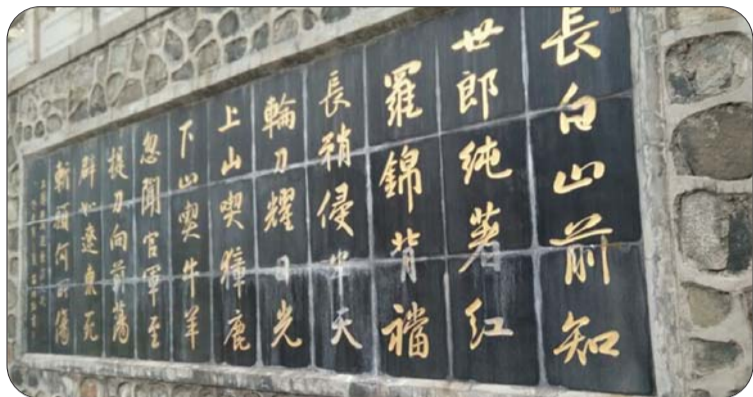 長白山前知
世郎純著紅
羅錦背襠
長矟侵半天
輪刀耀日光
上山喫獐鹿
下山喫牛羊
忽聞官軍至
提刀向前蕩
辟如遼東死
斬頭何所傷